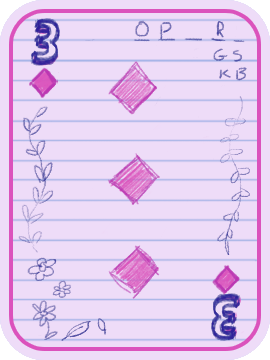 3 O P _ R _
G S
K B
3